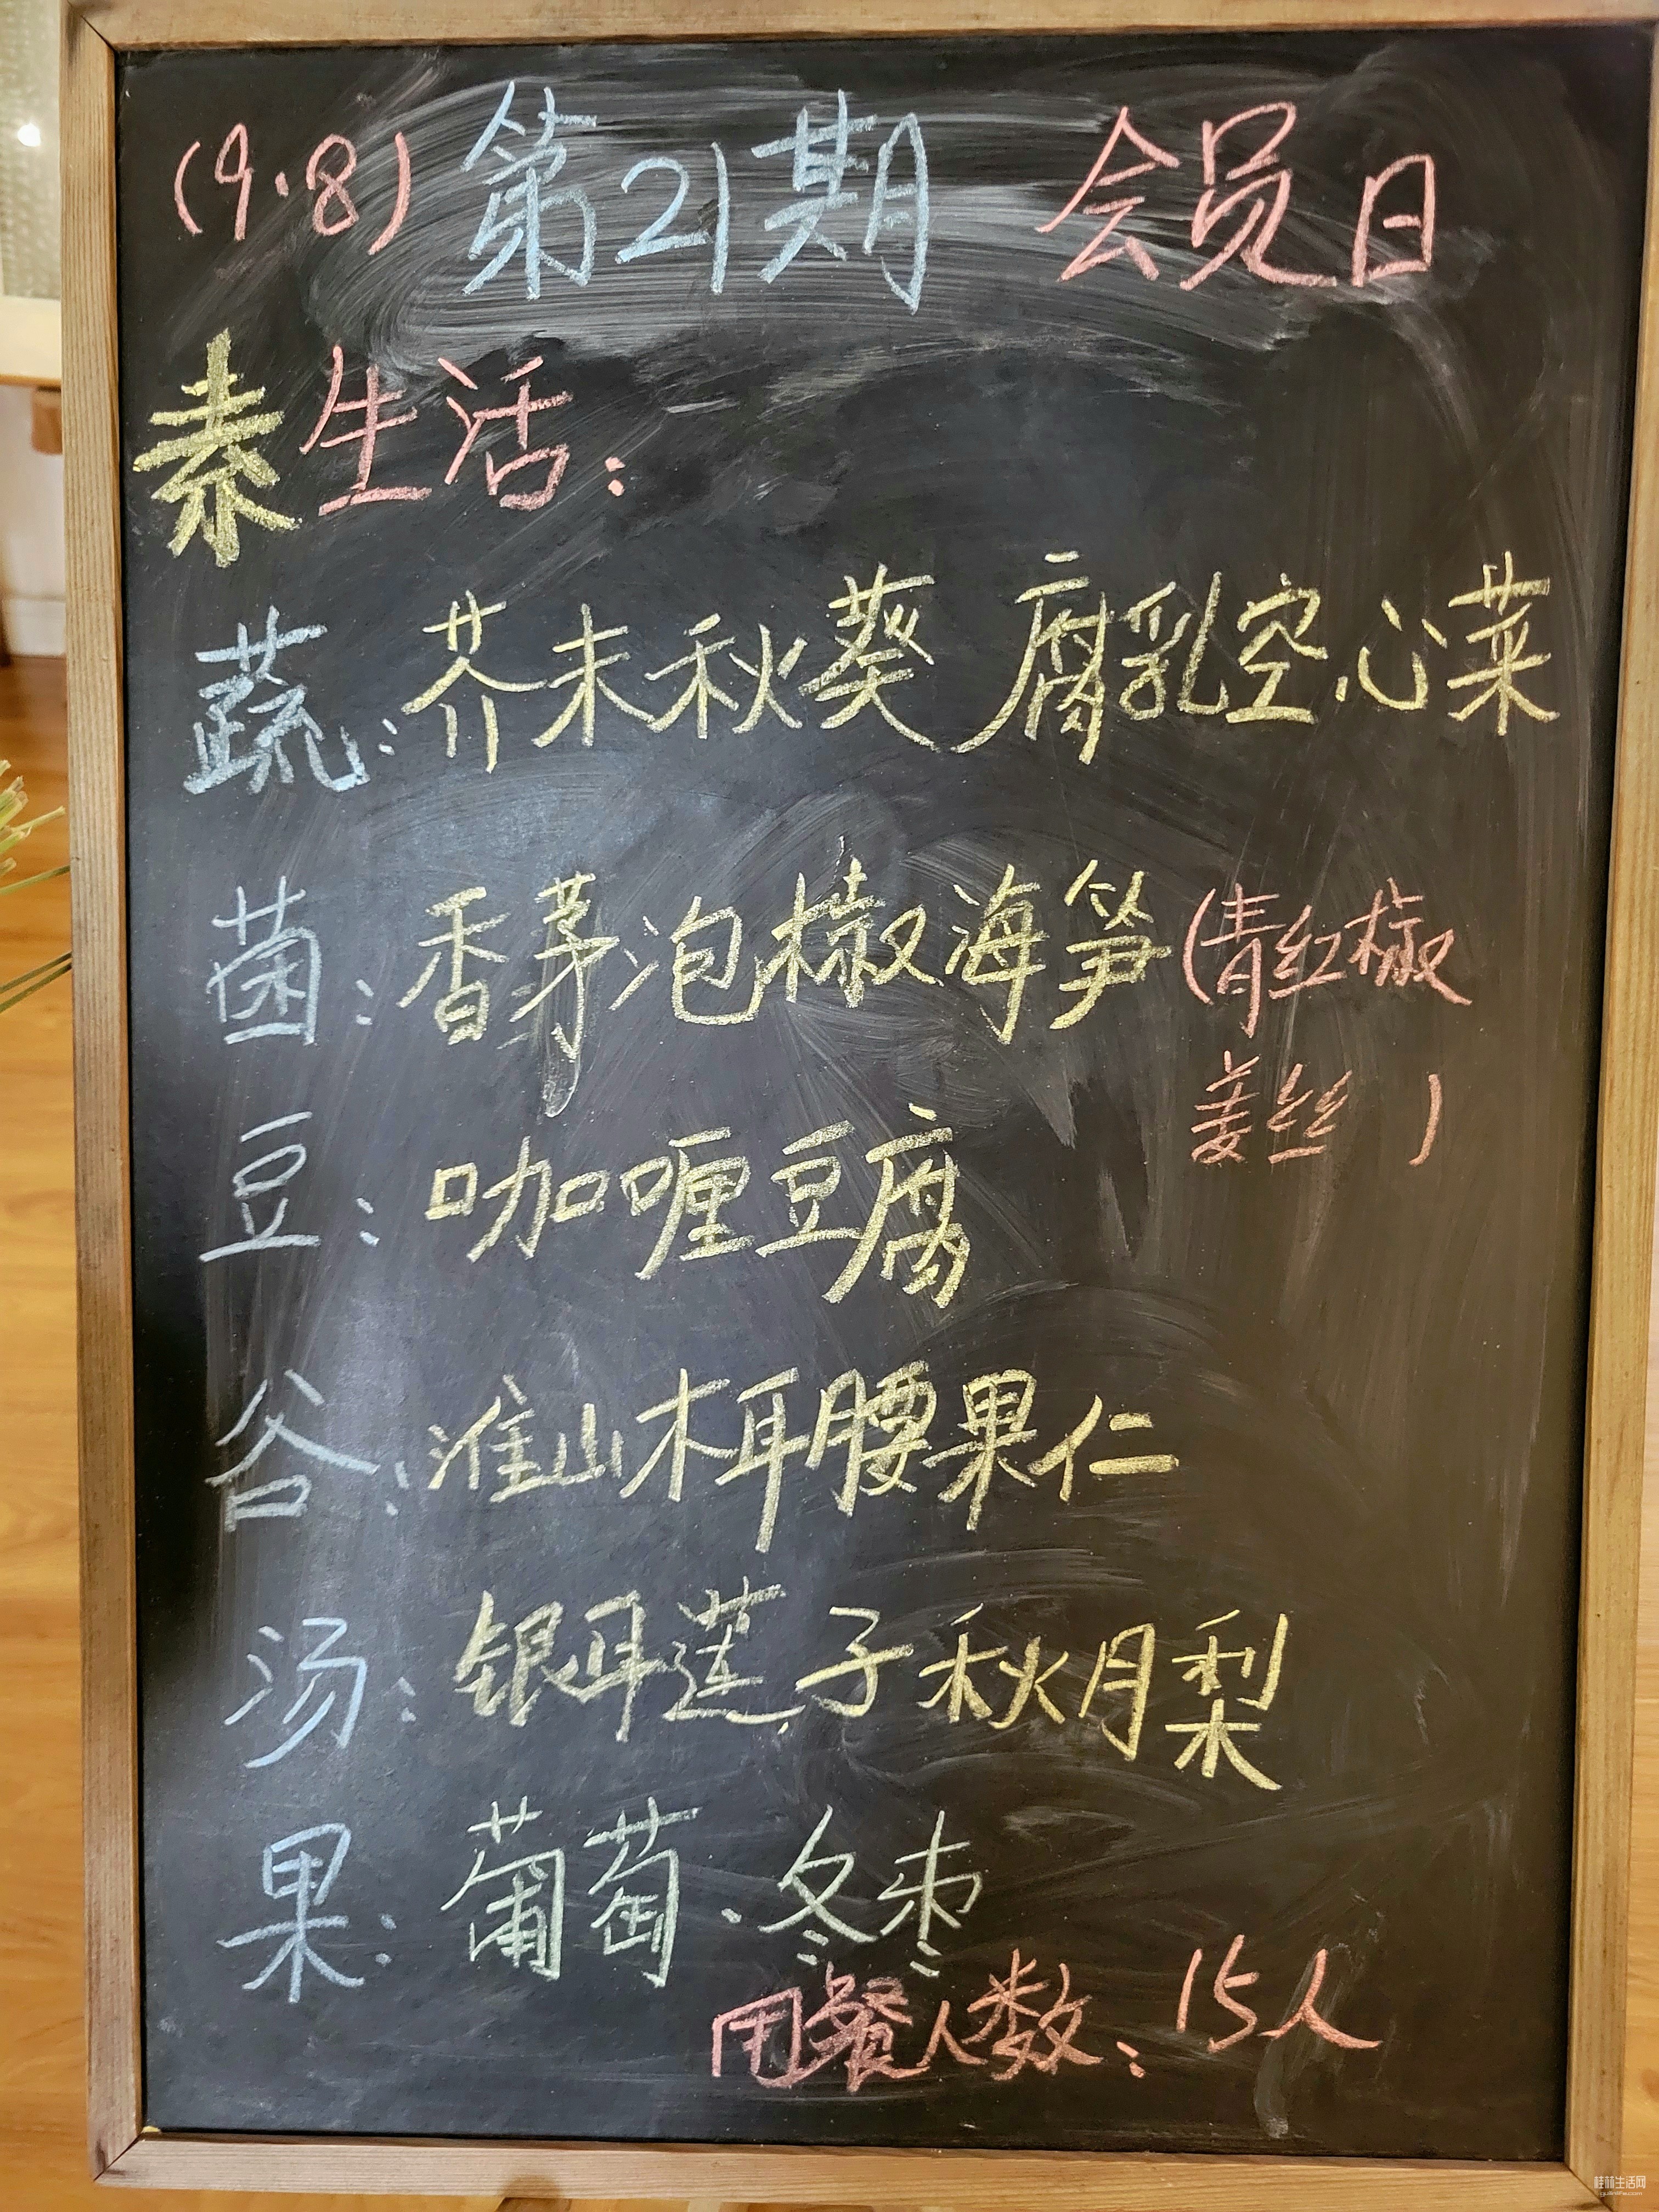 (9.8) 第21期 会员日
素生活：
蔬：芥末秋葵 腐乳空心菜
菌：香茅泡椒海笋(青红椒
姜丝 )
豆：咖喱豆腐
谷：淮山木耳腰果仁
汤：银耳莲子秋月梨
果：葡萄、冬枣
用餐人数：15人
桂林生活网